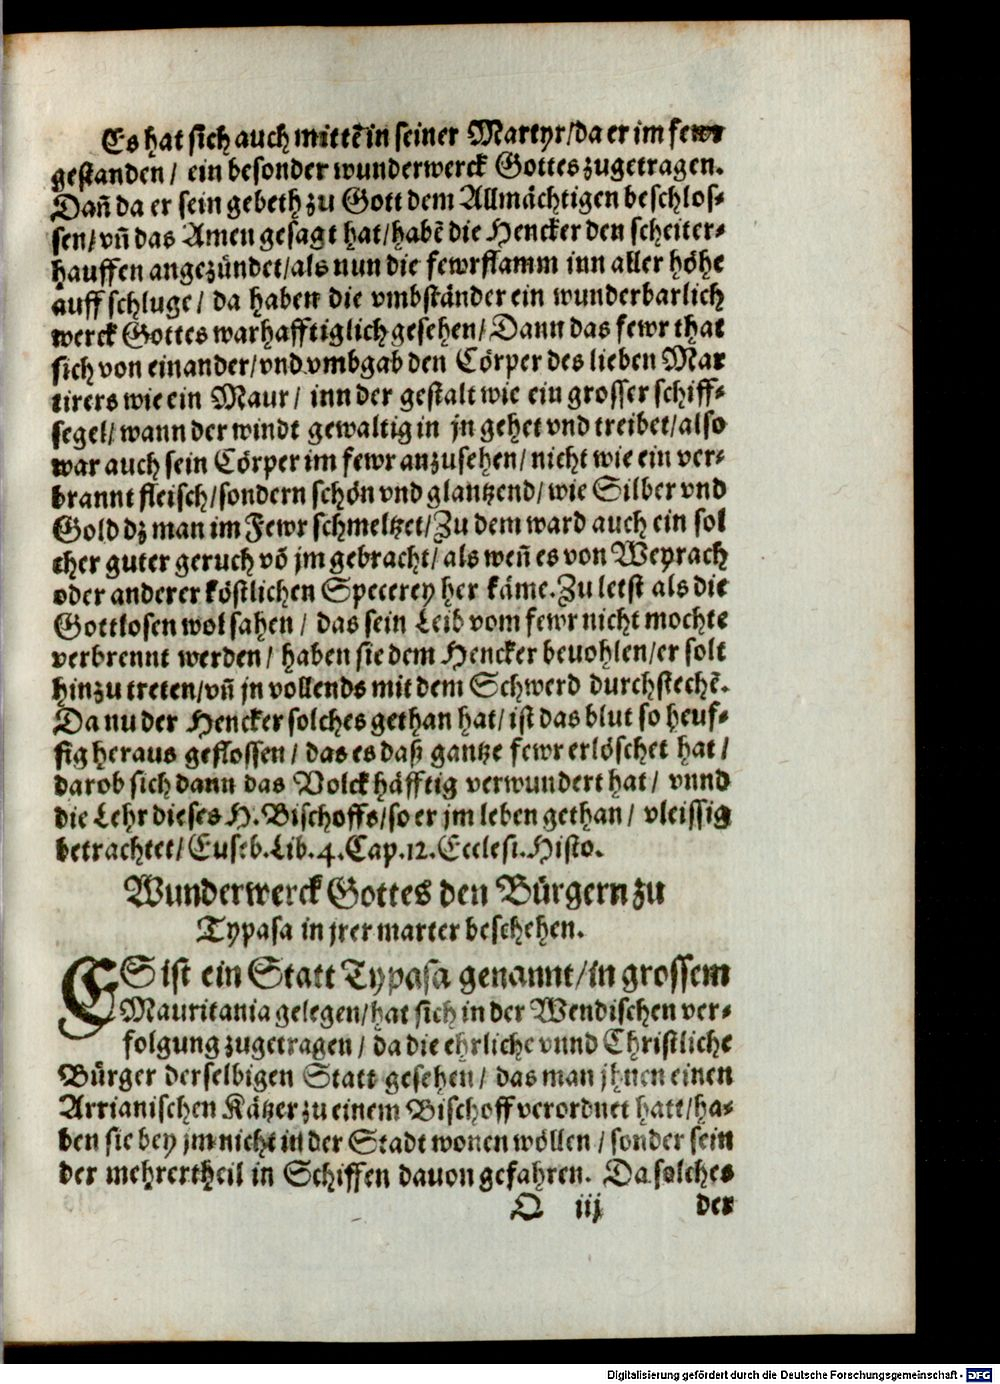 Es hat sich auch mittē in seiner Martyr/da er im fewr
gestanden/ ein besonder wunderwerck Gottes zugetragen.
Dañ da er sein gebeth zu Gott dem Allmächtigen beschlos-
sen/vñ das Amen gesagt hat/habē die Hencker den scheiter-
hauffen angezündet/als nun die fewrflamm inn aller höhe
auff schluge/ da haben die vmbständer ein wunderbarlich
werck Gottes warhafftiglich gesehen/ Dann das fewr that
sich von einander/vnd vmbgab den Cörper des lieben Mar
tirers wie ein Maur/ inn der gestalt wie ein grosser schiff-
segel/ wann der windt gewaltig in jn gehet vnd treibet/also
war auch sein Cörper im fewr anzusehen/ nicht wie ein ver-
brannt fleisch/sondern schön vnd glantzend/ wie Silber vnd
Gold dz man im Fewr schmeltzet/Zu dem ward auch ein sol
cher guter geruch vō jm gebracht/ als weñ es von Weyrach
oder anderer köstlichen Specerey her käme. Zu letst als die
Gottlosen wol sahen/ das sein Leib vom fewr nicht mochte
verbrennt werden/ haben sie dem Hencker beuohlen/er solt
hinzu treten/vñ jn vollends mit dem Schwerd durchstechē.
Da nu der Hencker solches gethan hat/ ist das blut so heuf-
fig heraus geflossen/ das es daß gantze fewr erlöschet hat/
darob sich dann das Volck häfftig verwundert hat/ vnnd
die Lehr dieses H. Bischoffs/so er jm leben gethan/ vleissig
betrachtet/ Euseb. Lib. 4. Cap. 12. Ecclesi. Histo.
Wunderwerck Gottes den Bürgern zu
Typasa in jrer marter beschehen.
ES ist ein Statt Typasa genannt/in grossem
Mauritania gelegen/hat sich in der Wendischen ver-
folgung zugetragen/ da die ehrliche vnnd Christliche
Bürger derselbigen Statt gesehen/ das man jhnen einen
Arrianischen Kätzer zu einem Bischoff verordnet hatt/ha-
ben sie bey jm nicht in der Stadt wonen wöllen/ sonder sein
der mehrertheil in Schiffen dauon gefahren. Da solches
Q iij der
Digitalisierung gefördert durch die Deutsche Forschungsgemeinschaft - DFG